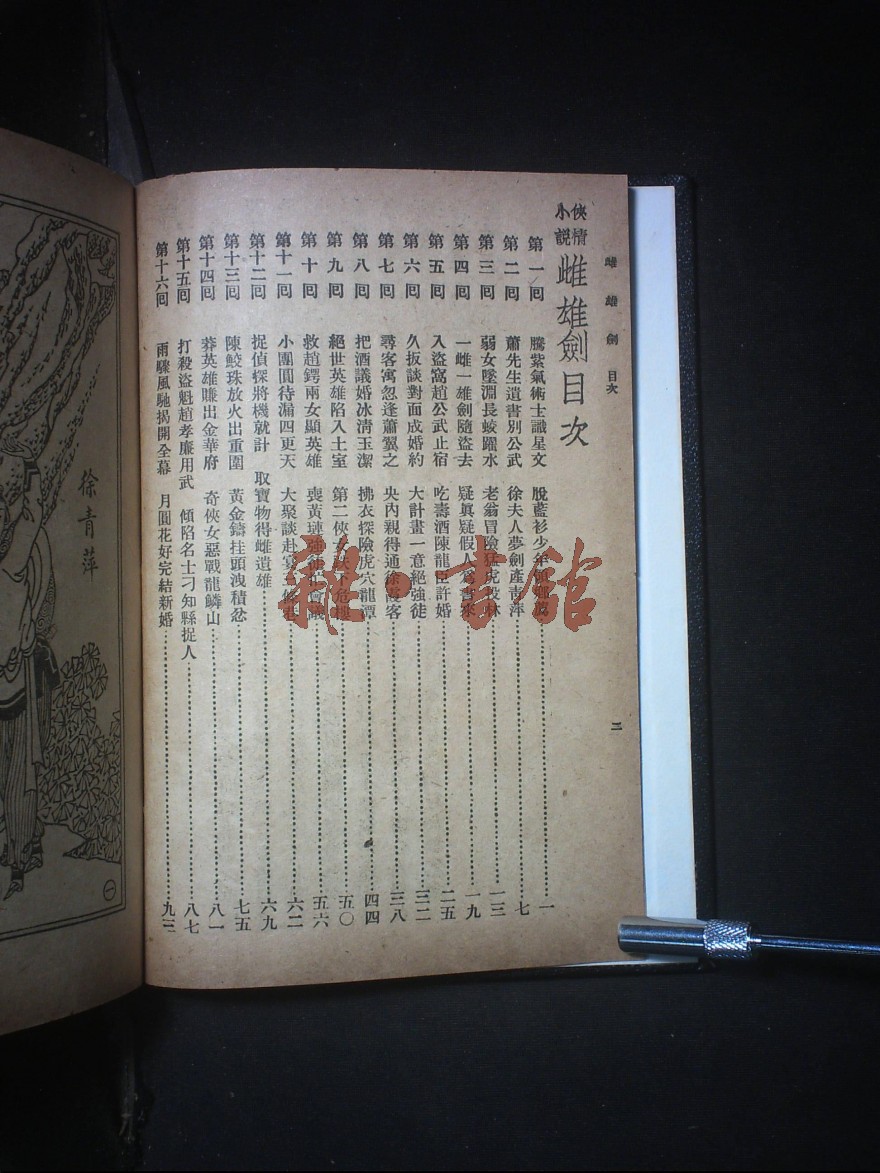 雌雄劍 目次
二
俠情小說 雌雄劍目次
第一回 騰紫氣術士識星文 脫藍衫少年 一
第二回 蕭先生遺書別公武 徐夫人夢劍產青萍 七
第三回 弱女墜淵長蛟躍水 老翁冒險猛虎投林 一三
第四回 一雌一雄劍隨盜去 疑眞疑假人爲書來 一九
第五回 入盜窩趙公武止宿 吃壽酒陳龍臣許婚 二五
第六回 久扳談對面成婚約 大計畫一意絕強徒 三二
第七回 尋客寓忽逢蕭翼之 央內親得通徐霞客 三八
第八回 把酒議婚冰清玉潔 拂衣探險虎穴龍潭 四四
第九回 絕世英雄陷入土室 第二俠女 下危樓 五〇
第十回 救趙鍔兩女顯英雄 喪黃璉強徒 會議 五六
第十一回 小團圓待漏四更天 大聚談赴宴三條巷 六二
第十二回 捉偵探將機就計 取寶物得雌遺雄 六九
第十三回 陳鮫珠放火出重圍 黃金鑄挂頭洩積忿 七五
第十四回 莽英雄賺出金華府 奇俠女惡戰龍鱗山 八一
第十五回 打殺盜魁趙孝廉用武 傾陷名士刁知縣捉人 八七
第十六回 雨驟風馳揭開全幕 月圓花好完結新婚 九三
徐青萍
一
雜·書館